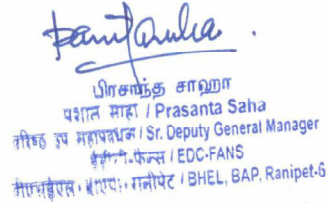 பிரசாந்த சாஹா
प्रशांत साहा / Prasanta Saha
वरिष्ठ उप महाप्रबंधक / Sr. Deputy General Manager
ईडीसी-फैन्स / EDC-FANS
बीएचईएल, बीएपी, रानीपेट / BHEL, BAP, Ranipet-6